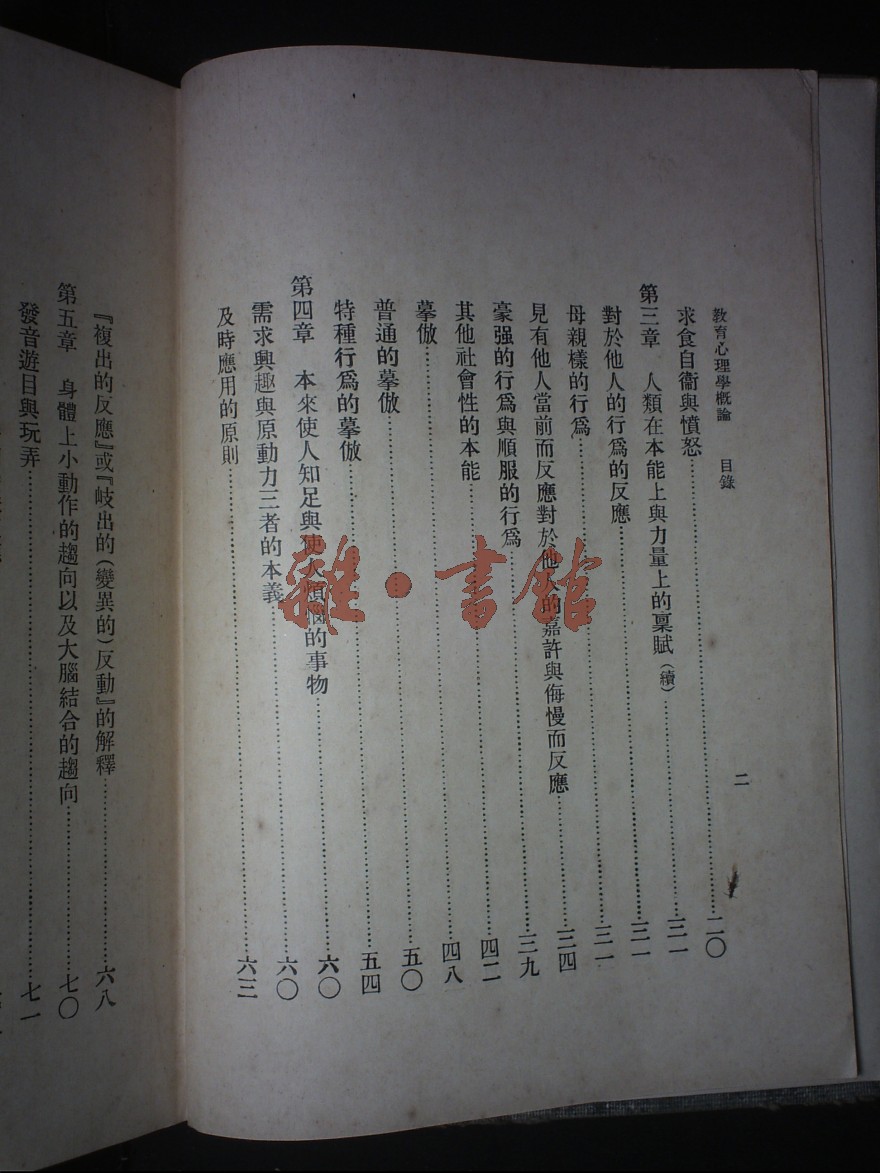 教育心理學概論 目錄 二
求食自衛與憤怒……二〇
第三章 人類在本能上與力量上的稟賦(續)……三一
對於他人的行爲的反應……三一
母親樣的行爲……三一
見有他人當前而反應對於他人的嘉許與侮慢而反應……三四
豪强的行爲與順服的行爲……三九
其他社會性的本能……四二
摹倣……四八
普通的摹倣……五〇
特種行爲的摹倣……五四
第四章 本來使人知足與使人煩惱的事物……六〇
需求興趣與原動力三者的本義……六〇
及時應用的原則……六三
『複出的反應』或『岐出的(變異的)反動』的解釋……六八
第五章 身體上小動作的趨向以及大腦結合的趨向……七〇
發音遊目與玩弄……七一
雜·書館